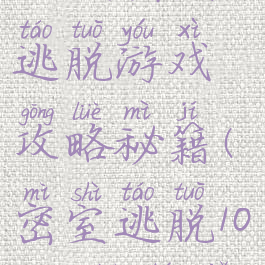 táo tuō yóu xì
逃脱游戏
gōng lüè mì jí
攻略秘籍(
mì shì táo tuō
密室逃脱10